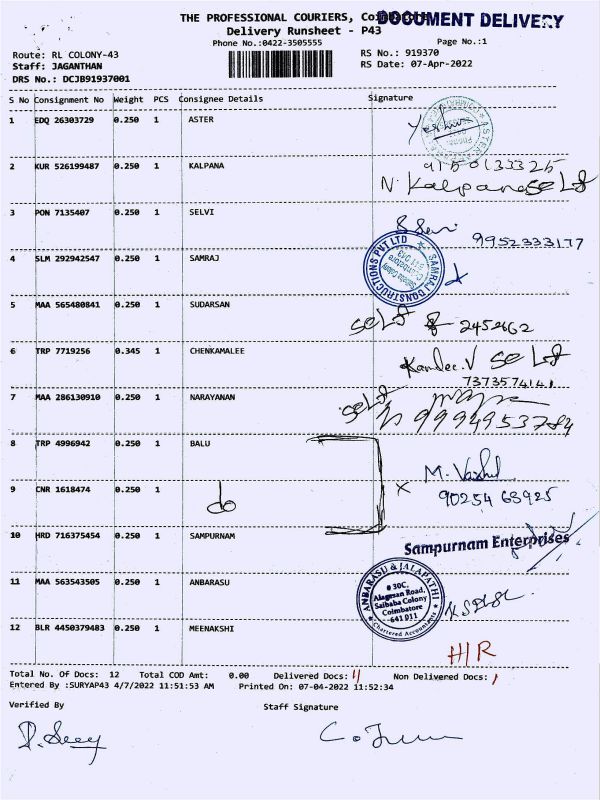 THE PROFESSIONAL COURIERS, Coimbatore
DOCUMENT DELIVERY
Delivery Runsheet - P43
Phone No.:0422-3505555
Page No.:1
Route: RL COLONY-43
RS No.: 919370
Staff: JAGANTHAN
RS Date: 07-Apr-2022
DRS No.: DCJB91937001
S No Consignment No Weight PCS Consignee Details Signature
1 EDQ 26303729 0.250 1 ASTER
2 KUR 526199487 0.250 1 KALPANA 9150133325
N. Kalpana self
3 PON 7135407 0.250 1 SELVI
9952333177
4 SLM 292942547 0.250 1 SAMRAJ
SAMRAJ CONSTRUCTIONS PVT LTD
Saibaba Colony
Coimbatore
5 MAA 565480841 0.250 1 SUDARSAN
self 2452662
6 TRP 7719256 0.345 1 CHENKAMALEE
self
7373574141
7 MAA 286130910 0.250 1 NARAYANAN
self 9994953784
8 TRP 4996942 0.250 1 BALU
9 CNR 1618474 0.250 1 do x
90254 63925
10 HRD 716375454 0.250 1 SAMPURNAM
Sampurnam Enterprises
11 MAA 563543505 0.250 1 ANBARASU
ANBARASU & JALAPATHI
# 30C,
Alagesan Road,
Saibaba Colony
Coimbatore
- 641 011
Chartered Accountants
12 BLR 4450379483 0.250 1 MEENAKSHI
H/R
Total No. Of Docs: 12 Total COD Amt: 0.00 Delivered Docs: 11 Non Delivered Docs: 1
Entered By :SURYAP43 4/7/2022 11:51:53 AM Printed On: 07-04-2022 11:52:34
Verified By Staff Signature